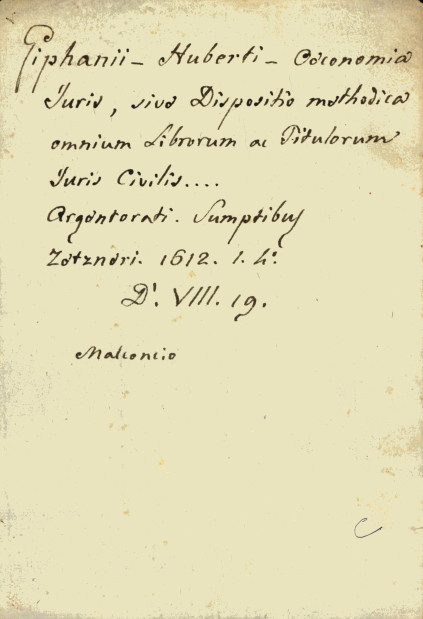 Giphanii - Huberti - Oeconomia
Juris, sive Dispositio methodica
omnium Librorum ac Titulorum
Juris Civilis....
Argentorati. Sumptibus
Zetzneri. 1612. 1. 4º.
D'. VIII. 19.
Malconcio
C